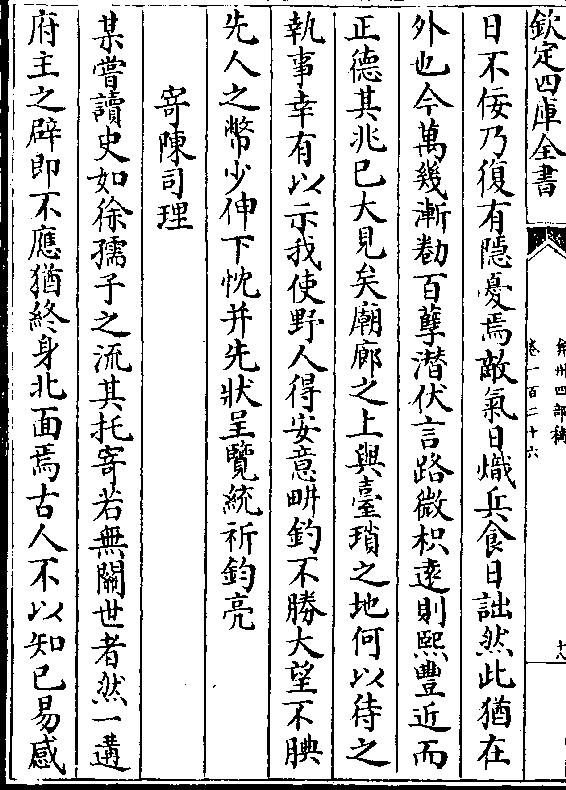 欽定四庫全書
弇州四部稿
卷一百二十六
十八
日不佞乃復有隱憂焉敵氣日熾兵食日詘然此猶在
外也今萬幾漸勌百孽潛伏言路微枳遠則熙豐近而
正德其兆已大見矣廟廊之上與臺瑣之地何以待之
執事幸有以示我使野人得安意畊釣不勝大望不腆
先人之幣少伸下忱并先狀呈覽統祈鈞亮
寄陳司理
某嘗讀史如徐孺子之流其托寄若無關世者然一遘
府主之辟即不應猶終身北面焉古人不以知已易感